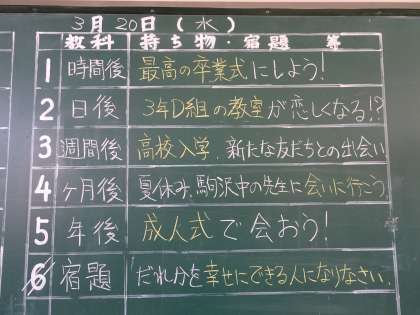 3月20日(水)
教科 持ち物・宿題 等
1 時間後 最高の卒業式にしよう!
2 日後 3年D組の教室が恋しくなる!?
3 週間後 高校入学、新たな友だちとの出会い
4 ヶ月後 夏休み、駒沢中の先生に会いに行こう
5 年後 成人式で会おう!
6 宿題 だれ分を幸せにできる人になりなさい。